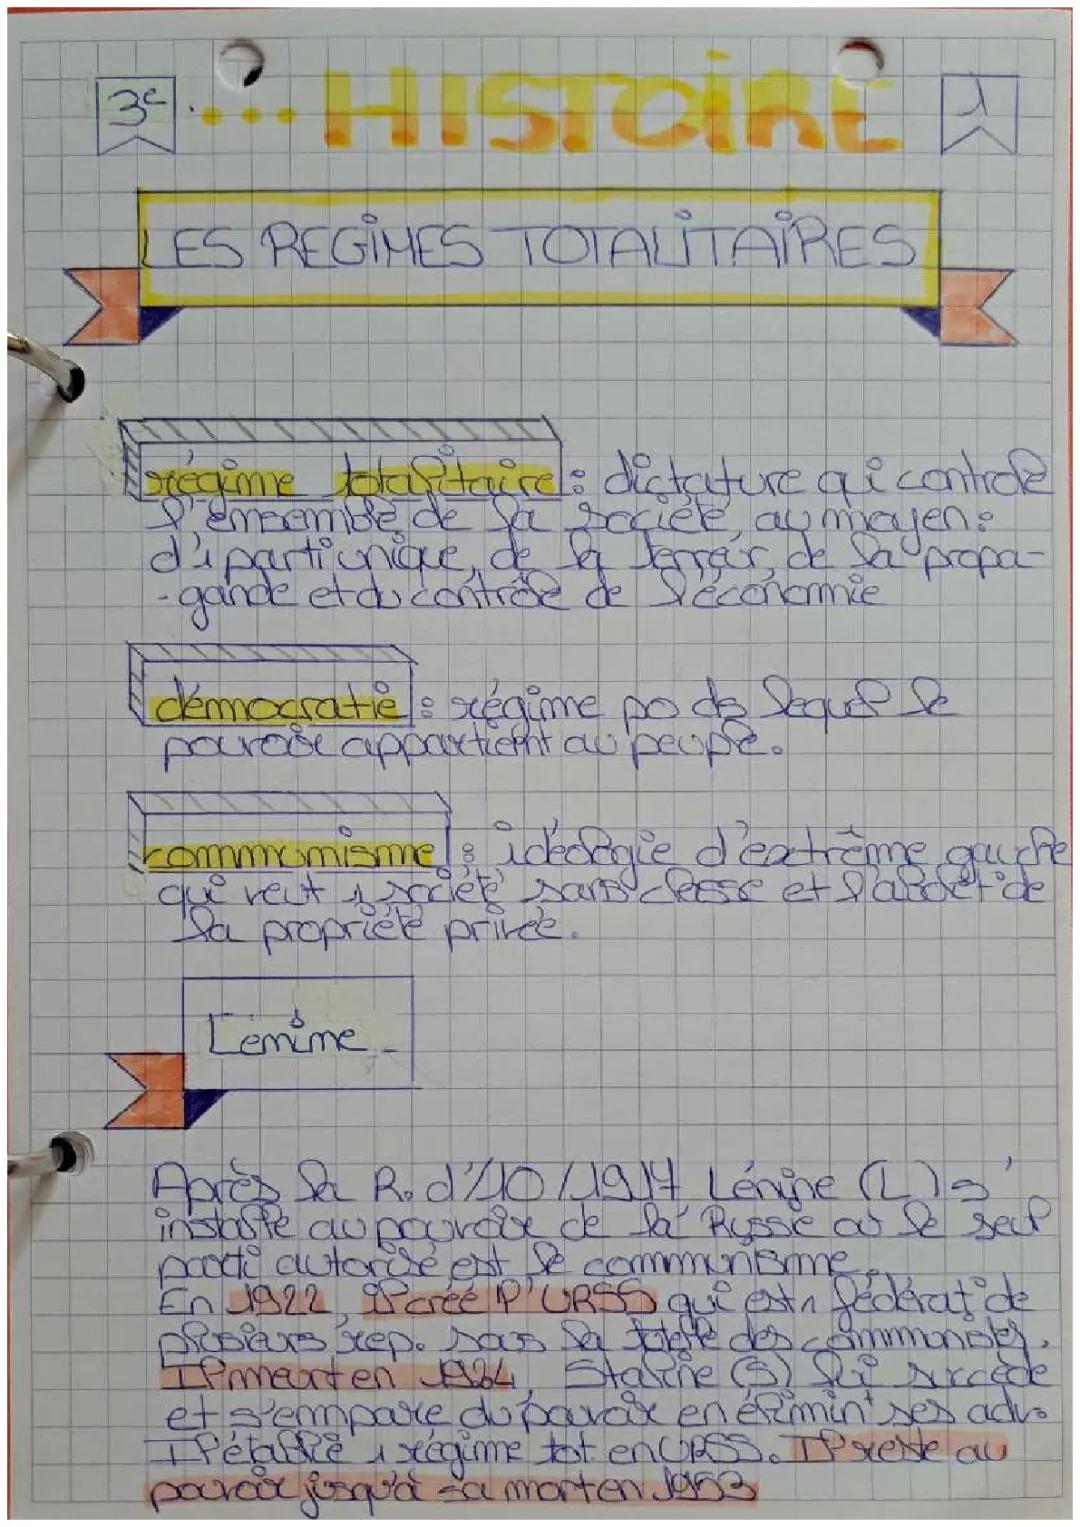 3e
.... HISTOIRE
1
LES REGIMES TOTALITAIRES
régime totalitaire : dictature qui contrôle
l'ensemble de la société, au moyen :
d'1 parti unique, de la terreur, de la propa-
-gande et du contrôle de l'économie
démocratie : régime po ds lequel le
pouvoir appartient au peuple.
communisme : idéologie d'extrême gauche
qui veut 1 société sans classe et l'abolit° de
la propriété privée.
Lénine
Après la R. d'10/1917 Lénine (L) s'
installe au pouvoir de la Russie où le seul
parti autorisé est le communisme.
En 1922, il crée l'URSS qui est 1 fédérat° de
plusieurs rep. sous la tutelle des communistes.
Il meurt en 1924, Staline (S) lui succède
et s'empare du pouvoir en élimin' ses adv.
Il établie 1 régime tot. en URSS. Il reste au
pouvoir jusqu'à sa mort en 1953